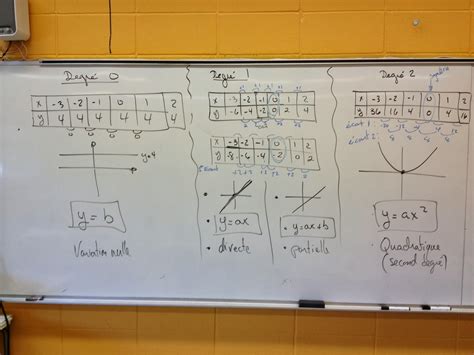 Degré 0
x -3 -2 -1 0 1 2
y 4 4 4 4 4 4
0 0 0 0
y=4
y=b
Variation nulle
Degré 1
x -3 -2 -1 0 1 2
y -6 -4 -2 0 2 4
x -3 -2 -1 0 1 2
y -8 -6 -4 -2 0 2
+2 +2 +2 +2 +2
y=ax
• directe
y=ax+b
• partielle
Degré 2
x -3 -2 -1 0 1 2
y 36 16 4 0 4 16
écart 1
écart 2
y=ax²
• Quadratique
(second degré)